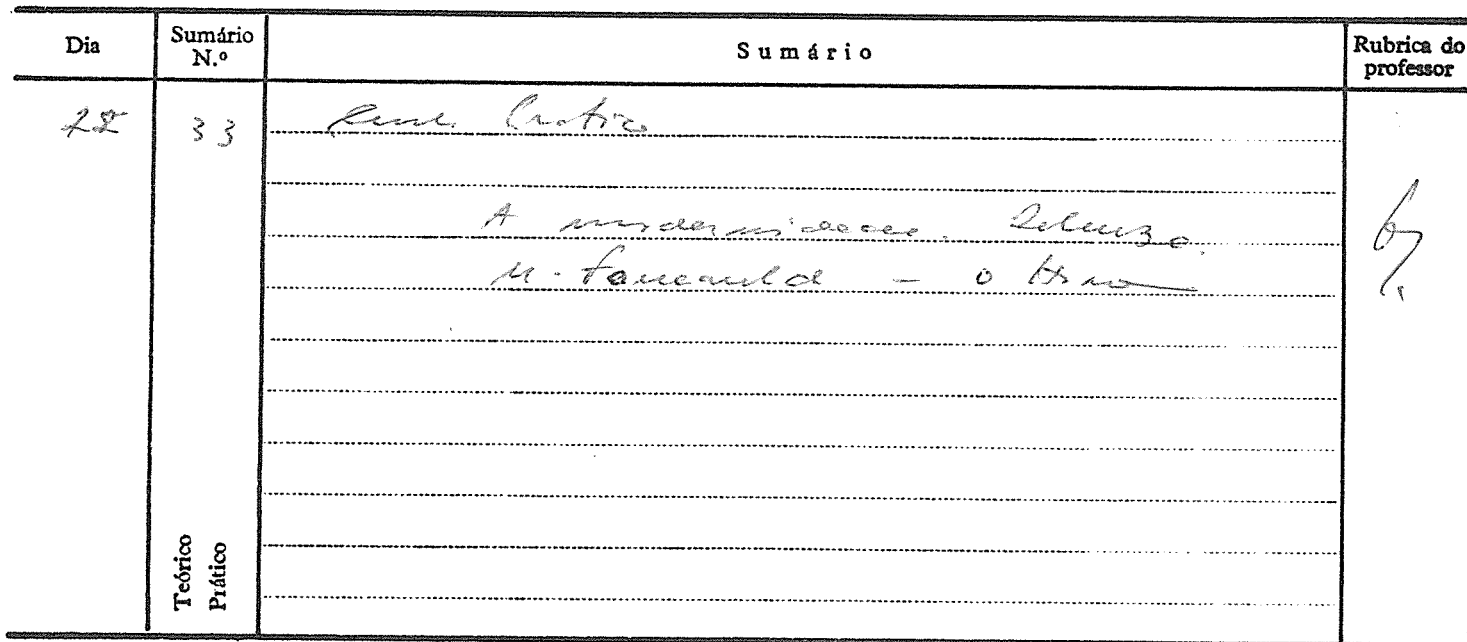 Dia
Sumário N.º
Sumário
Rubrica do professor
22
33
A modernidade. Deleuze.
M. Foucauld - o
Teórico
Prático